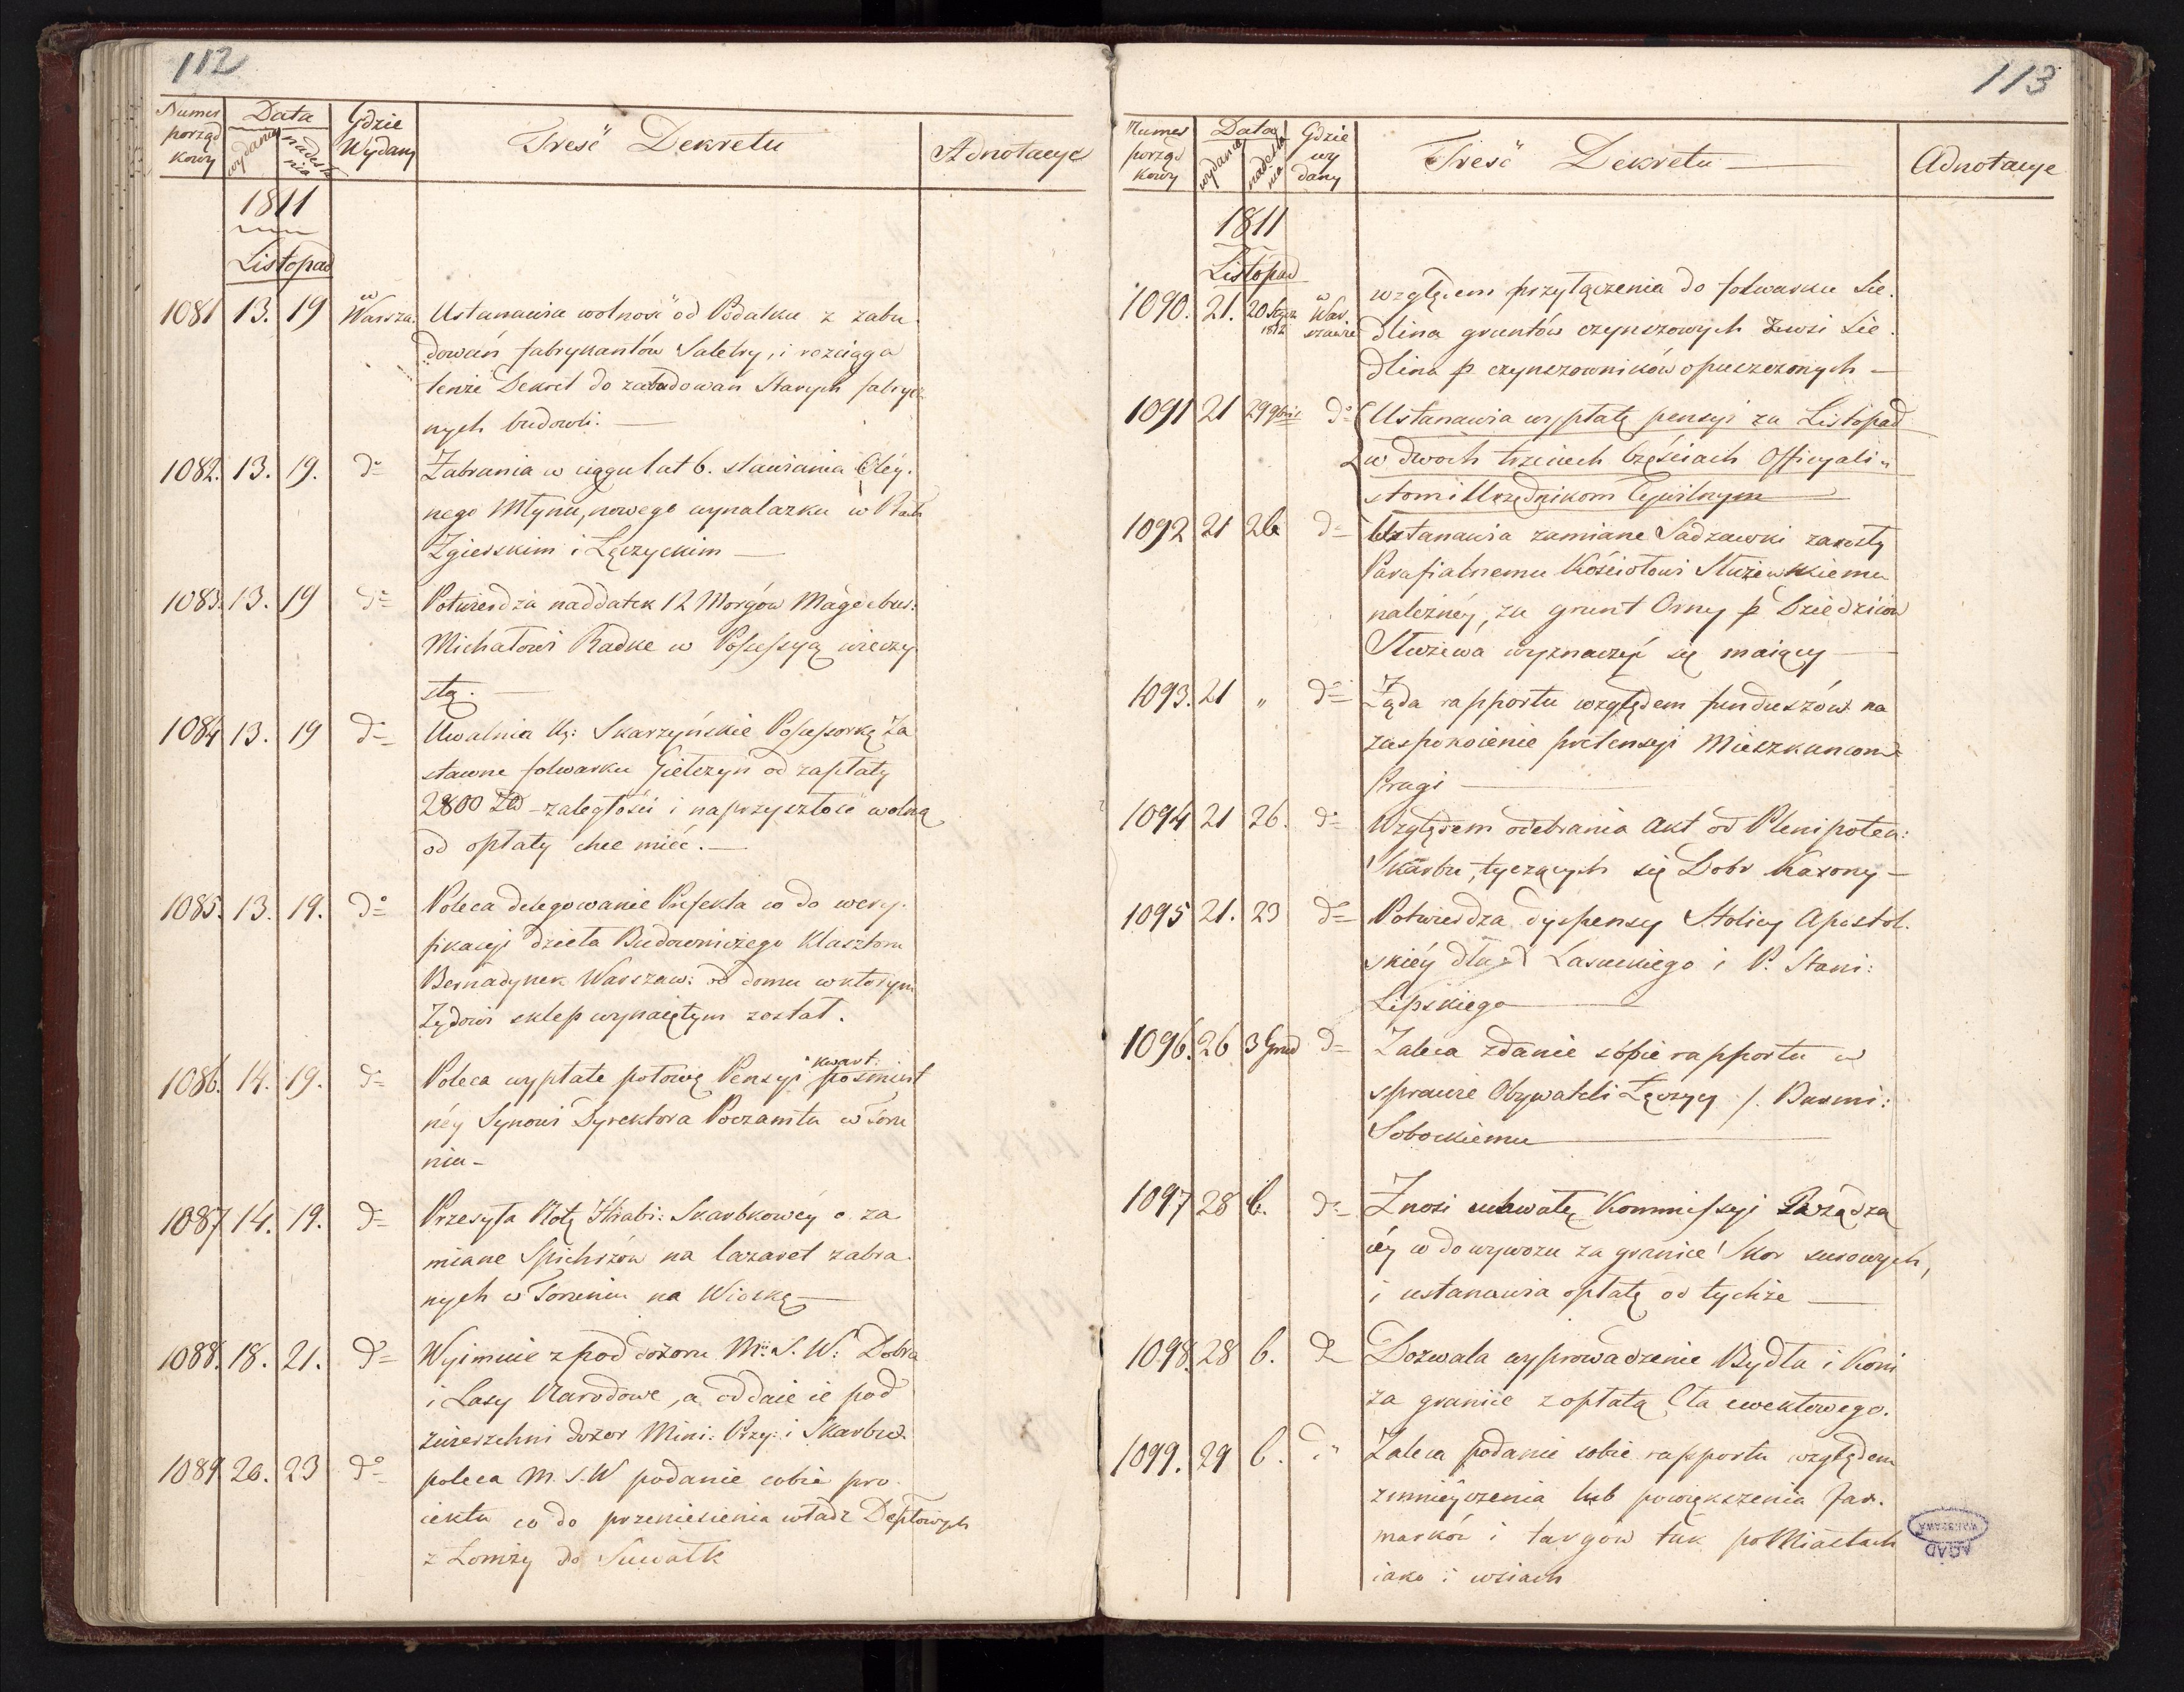 112
Numer porząd kowy
Data
wydania
nadesła nia
Gdzie Wydany
Treść Dekretu
Adnotacye
1811
Listopad
1081 13. 19 w Warsza. Ustanawia wolność od Podatku z zabu
dowań fabrykantów Saletry, i rozciąga
tenże Dekret do zabudowań Starych fabrycz
nych budowli. —
1082. 13. 19. do Zabrania w ciągu lat 6. stawiania Oléy.
nego Młynu, nowego wynalazku w
Zgierskim i Łęczyckim —
1083. 13. 19 do Potwierdza naddatek 12 Morgów Magdebur:
Michałowi Radke w Possessyą wieczy
stą. —
1084 13. 19 do Uwalnia Skarzyńskie Possessorkę Za
stawne folwarku Giełczyn od zapłaty
2800 Zło zaległości i naprzyszłość wolną
od opłaty chce mieć. —
1085. 13. 19. do Poleca delegowanie Prefekta co do wery.
fikacyi dzieła Budowniczego Klasztoru
Bernadynek Warszaw: od domu wktórym
Żydowi sklep wynaiętym został.
1086. 14. 19. do Poleca wypłate połowę Pensyi kwart. pośmiert
néy Synowi Dyrektora Poczamtu w Toru
niu –
1087 14. 19. do Przesyła Notę Hrabi: Skarbkowéy o za
miane Spichrzów na lazaret zabra.
nych w Toruniu na Wioskę —
1088. 18. 21. do Wyimuie zpod dozoru M. S. W. Dobra
i Lasy Narodowe, a oddaie ie pod
zwierzchni dozor Mini: Przy: i Skarbu.
1089. 20. 23 do poleca M. S. W podanie sobie pro
iektu co do przeniesienia władz Deptowych
z Łomży do Suwałk
113
Numer porząd kowy
Data
wydania
nadesła nia
Gdzie wy dany
Treść Dekretu —
Adnotacye
1811
Listopad
1090. 21. 20 Stycz 1812 w War szawie względem przyłączenia do folwarku Sie.
dlina gruntów czynszowych Zwsi Sie.
dlina p czynszowników opuszczonych —
1091 21 29 9bris do Ustanawia wypłatę pensyi za Listopad
w dwoch trzecich Częściach Officyali„
stom i Urzędnikom Cywilnym —
1092 21 26 do Ustanawia zamiane Sadzawki zarosły
Parafialnemu Kościołowi Służewskiemu
należnéy, za grunt Orny p Dziedziców
Służewa wyznaczyć się maiący —
1093. 21 „ do Żąda rapportu względem funduszów na
zaspokoienie pretensyi Mieszkancom
Pragi —
1094 21 26. do Względem odebrania Akt od Plenipoten:
Skarbu, tyczących się Dobr Karony —
1095 21. 23 do Potwierdza dyspensy Stolicy Apostol.
skiéy dla Łasuckiego i P. Stani:
Lipskiego —
1096. 26 3 Grud do Zaleca zdanie sobie rapportu w
sprawie Obywateli Łęczycy /. Burmi:
Sobockiemu —
1097 28 6. do Znosi uchwałę Kommissyi Rządzą
céy w do wywozu za granice Skor surowych,
i ustanawia opłatę od tychże —
1098. 28 6. do Dozwala wyprowadzenie Bydła i Koni
za granice z opłatą Cła ewektowego.
1099. 29 6. do Zaleca podanie sobie rapportu względem
zmniéyszenia lub powiększenia Jar.
marków i targow tak po Miastach
iako i wsiach
AGAD
WARSZAWA